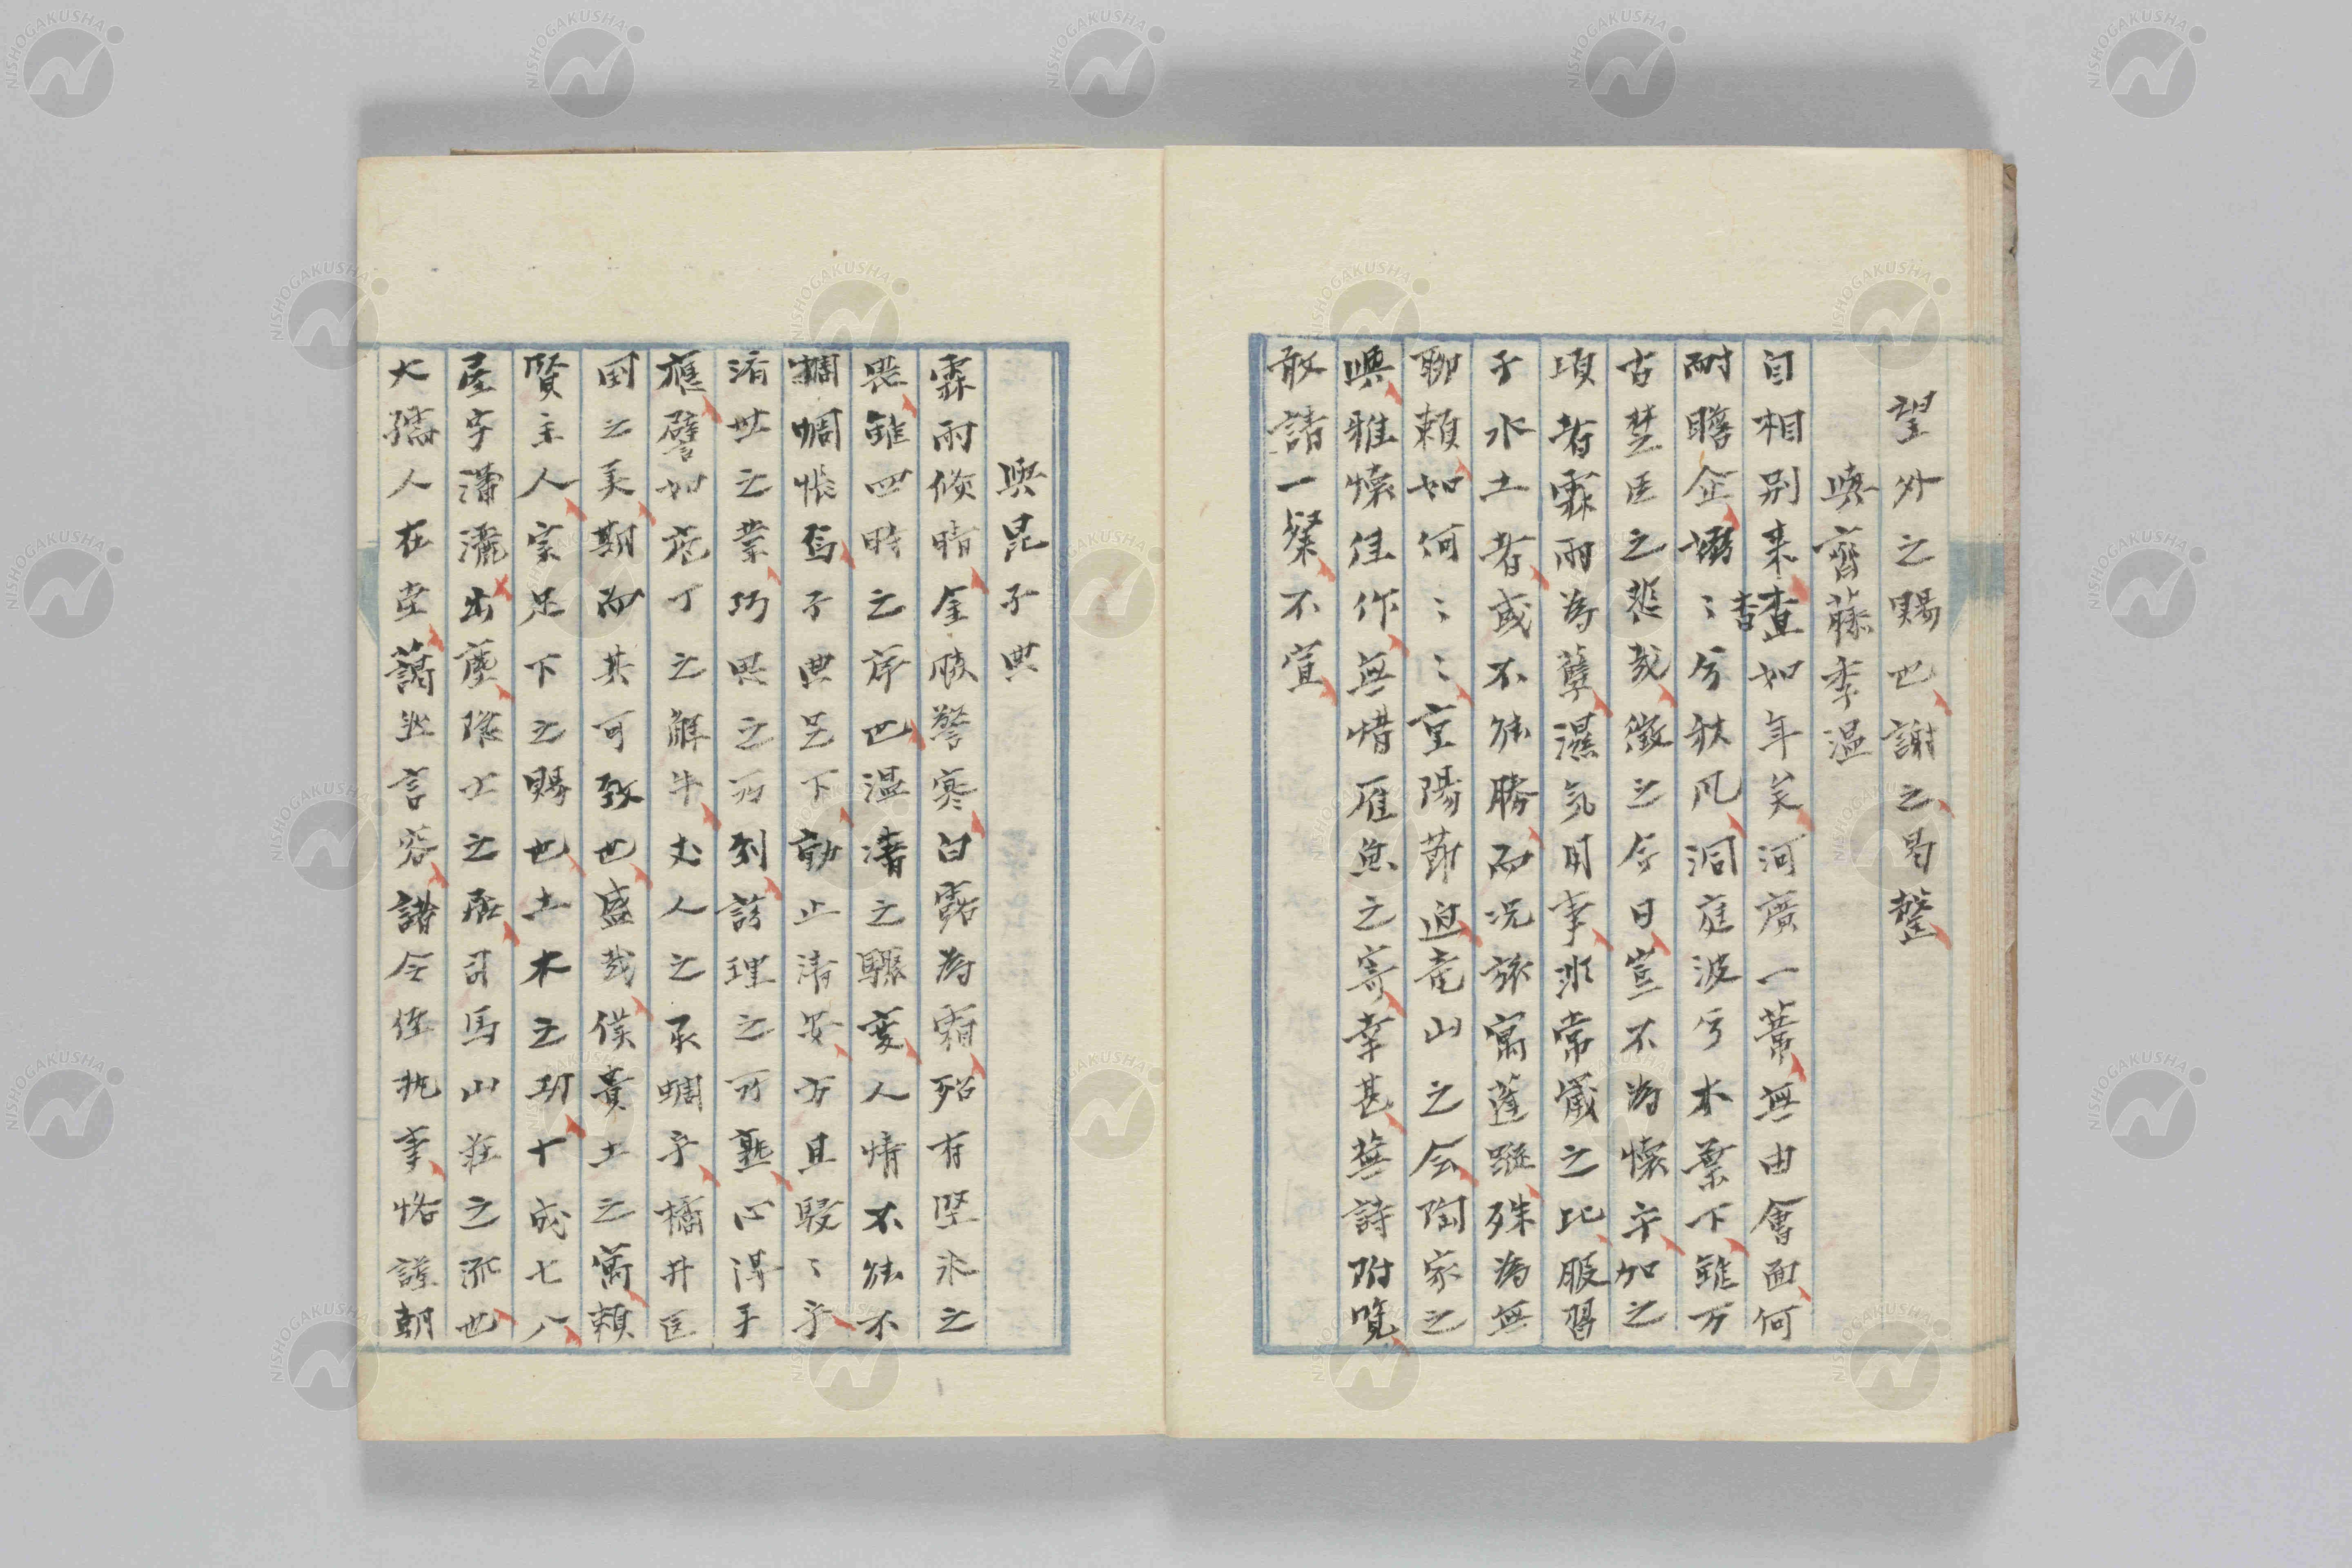 望外之賜也謝之曷罄
與齊藤季温
自相別来杳査如年矣河廣一葦無由會面何
耐瞻企溺〻兮秋風洞庭波兮木葉下雖万
古楚臣之悲哉徴之今日豈不為懐乎加之
頃者霖雨為孽濕気用事非常歳之比服習
于水土者或不能勝而况旅寓蓬蹤殊為無
聊頼如何〻〻重陽節迫竜山之会陶家之
興雅懐佳作無惜雁魚之寄幸甚蕪詩附覧
敢請一粲不宣
與昆子典
霖雨倏晴金颷警寒白露為霜殆有堅氷之
畏雖四時之序也温凄之驟変人情不能不
惆悵焉子典足下動止清安方且駸〻乎
済世之業巧思之所到該理之所熟心得手
應譬如庖丁之解牛丈人之承蜩乎橘井医
国之美期而其可致也盛哉僕貴土之寓頼
賢主人家足下之賜也土木之功十成七八
屋宇瀟灑出塵隠士之居司馬山荘之流也
大孺人在堂藹然言容諸令侄執事恪謹朝
NISHOGAKUSHA